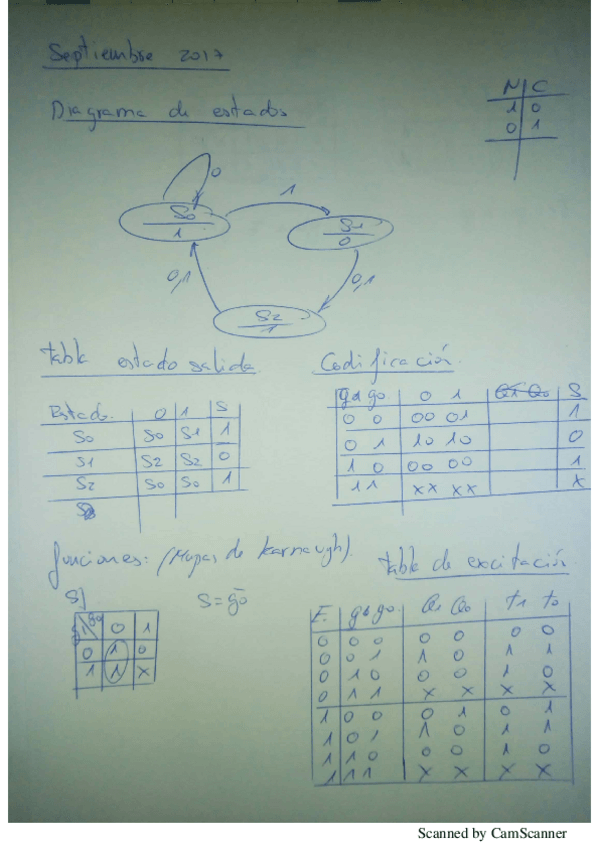 Septiembre 2017
N C
1 0
0 1
Diagrama de estados
0
S0
1
1
S1
0
0,1
0,1
S2
1
Tabla estado salida
Estado. 0 1 S
S0 S0 S1 1
S1 S2 S2 0
S2 S0 S0 1
Codificación.
q1 q0 0 1 Q1 Q0 S
0 0 00 01 1
0 1 10 10 0
1 0 00 00 1
1 1 xx xx x
funciones: (Mapas de karnaugh).
S]
S = q̄0
q1 q0 0 1
0 1 0
1 1 x
Tabla de excitación
E. q1 q0. Q1 Q0 t1 t0
0 0 0 0 0 0 0
0 0 1 1 0 1 1
0 1 0 0 0 1 0
0 1 1 x x x x
1 0 0 0 1 0 1
1 0 1 1 0 1 1
1 1 0 0 0 1 0
1 1 1 x x x x
Scanned by CamScanner